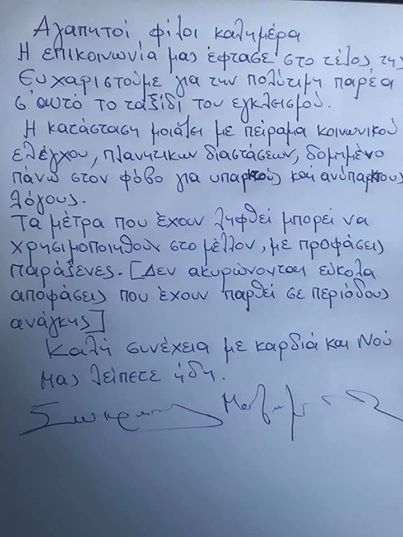 Αγαπητοί φίλοι καλημέρα
Η επικοινωνία μας έφτασε στο τέλος της
Ευχαριστούμε για την πολύτιμη παρέα
σ' αυτό το ταξίδι του εγκλεισμού.
Η κατάσταση μοιάζει με πείραμα κοινωνικού
ελέγχου, πλανητικών διαστάσεων, δομημένο
πάνω στον φόβο για υπαρκτούς και ανύπαρκτους
λόγους.
Τα μέτρα που έχουν ληφθεί μπορεί να
χρησιμοποιηθούν στο μέλλον, με προφάσεις
παράξενες. [Δεν ακυρώνονται εύκολα
αποφάσεις που έχουν παρθεί σε περιόδους
ανάγκης]
Καλή συνέχεια με καρδιά και Νού
Μας λείπετε ήδη.